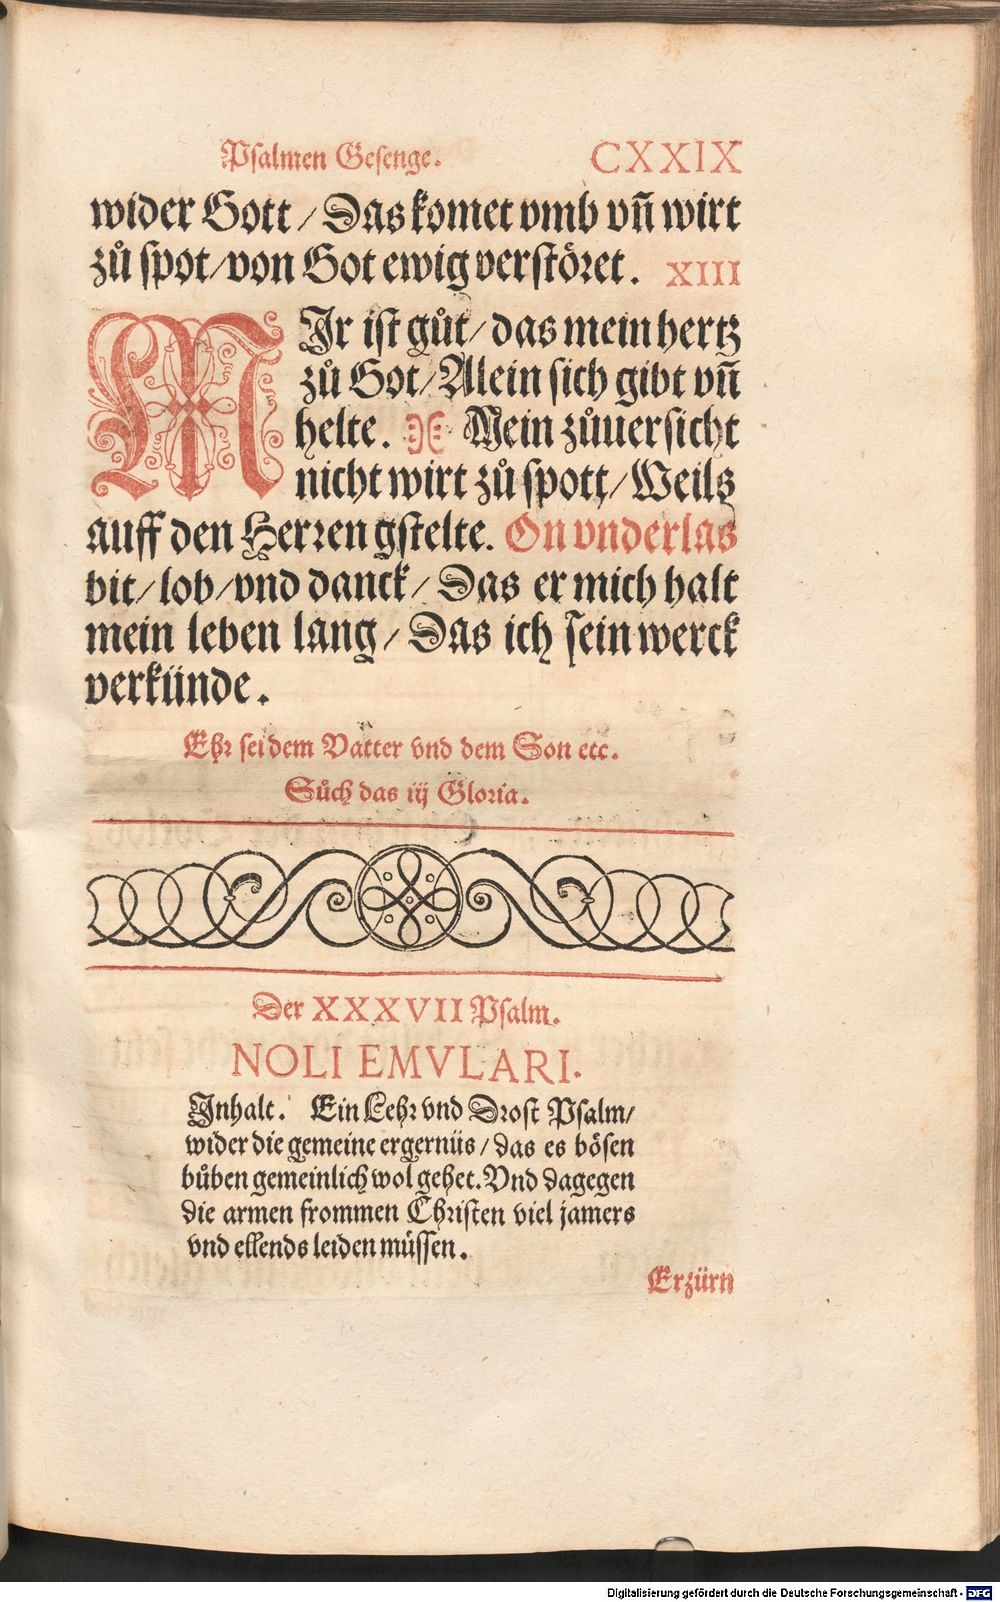 Psalmen Gesenge. CXXIX
wider Gott / Das komet vmb vñ wirt
zů spot / von Got ewig verstöret. XIII
MIr ist gůt / das mein hertz
zů Got / Alein sich gibt vñ
helte. Mein zůuersicht
nicht wirt zů spott / Weils
auff den Herren gstelte. On vnderlas
bit / lob / vnd danck / Das er mich halt
mein leben lang / Das ich sein werck
verkünde.
Ehr sei dem Vatter vnd dem Son etc.
Sůch das iij Gloria.
Der XXXVII Psalm.
NOLI EMVLARI.
Inhalt. Ein Lehr vnd Drost Psalm /
wider die gemeine ergernüs / das es bösen
bůben gemeinlich wol gehet. Vnd dagegen
die armen frommen Christen viel jamers
vnd ellends leiden müssen.
Erzürn
Digitalisierung gefördert durch die Deutsche Forschungsgemeinschaft - DFG